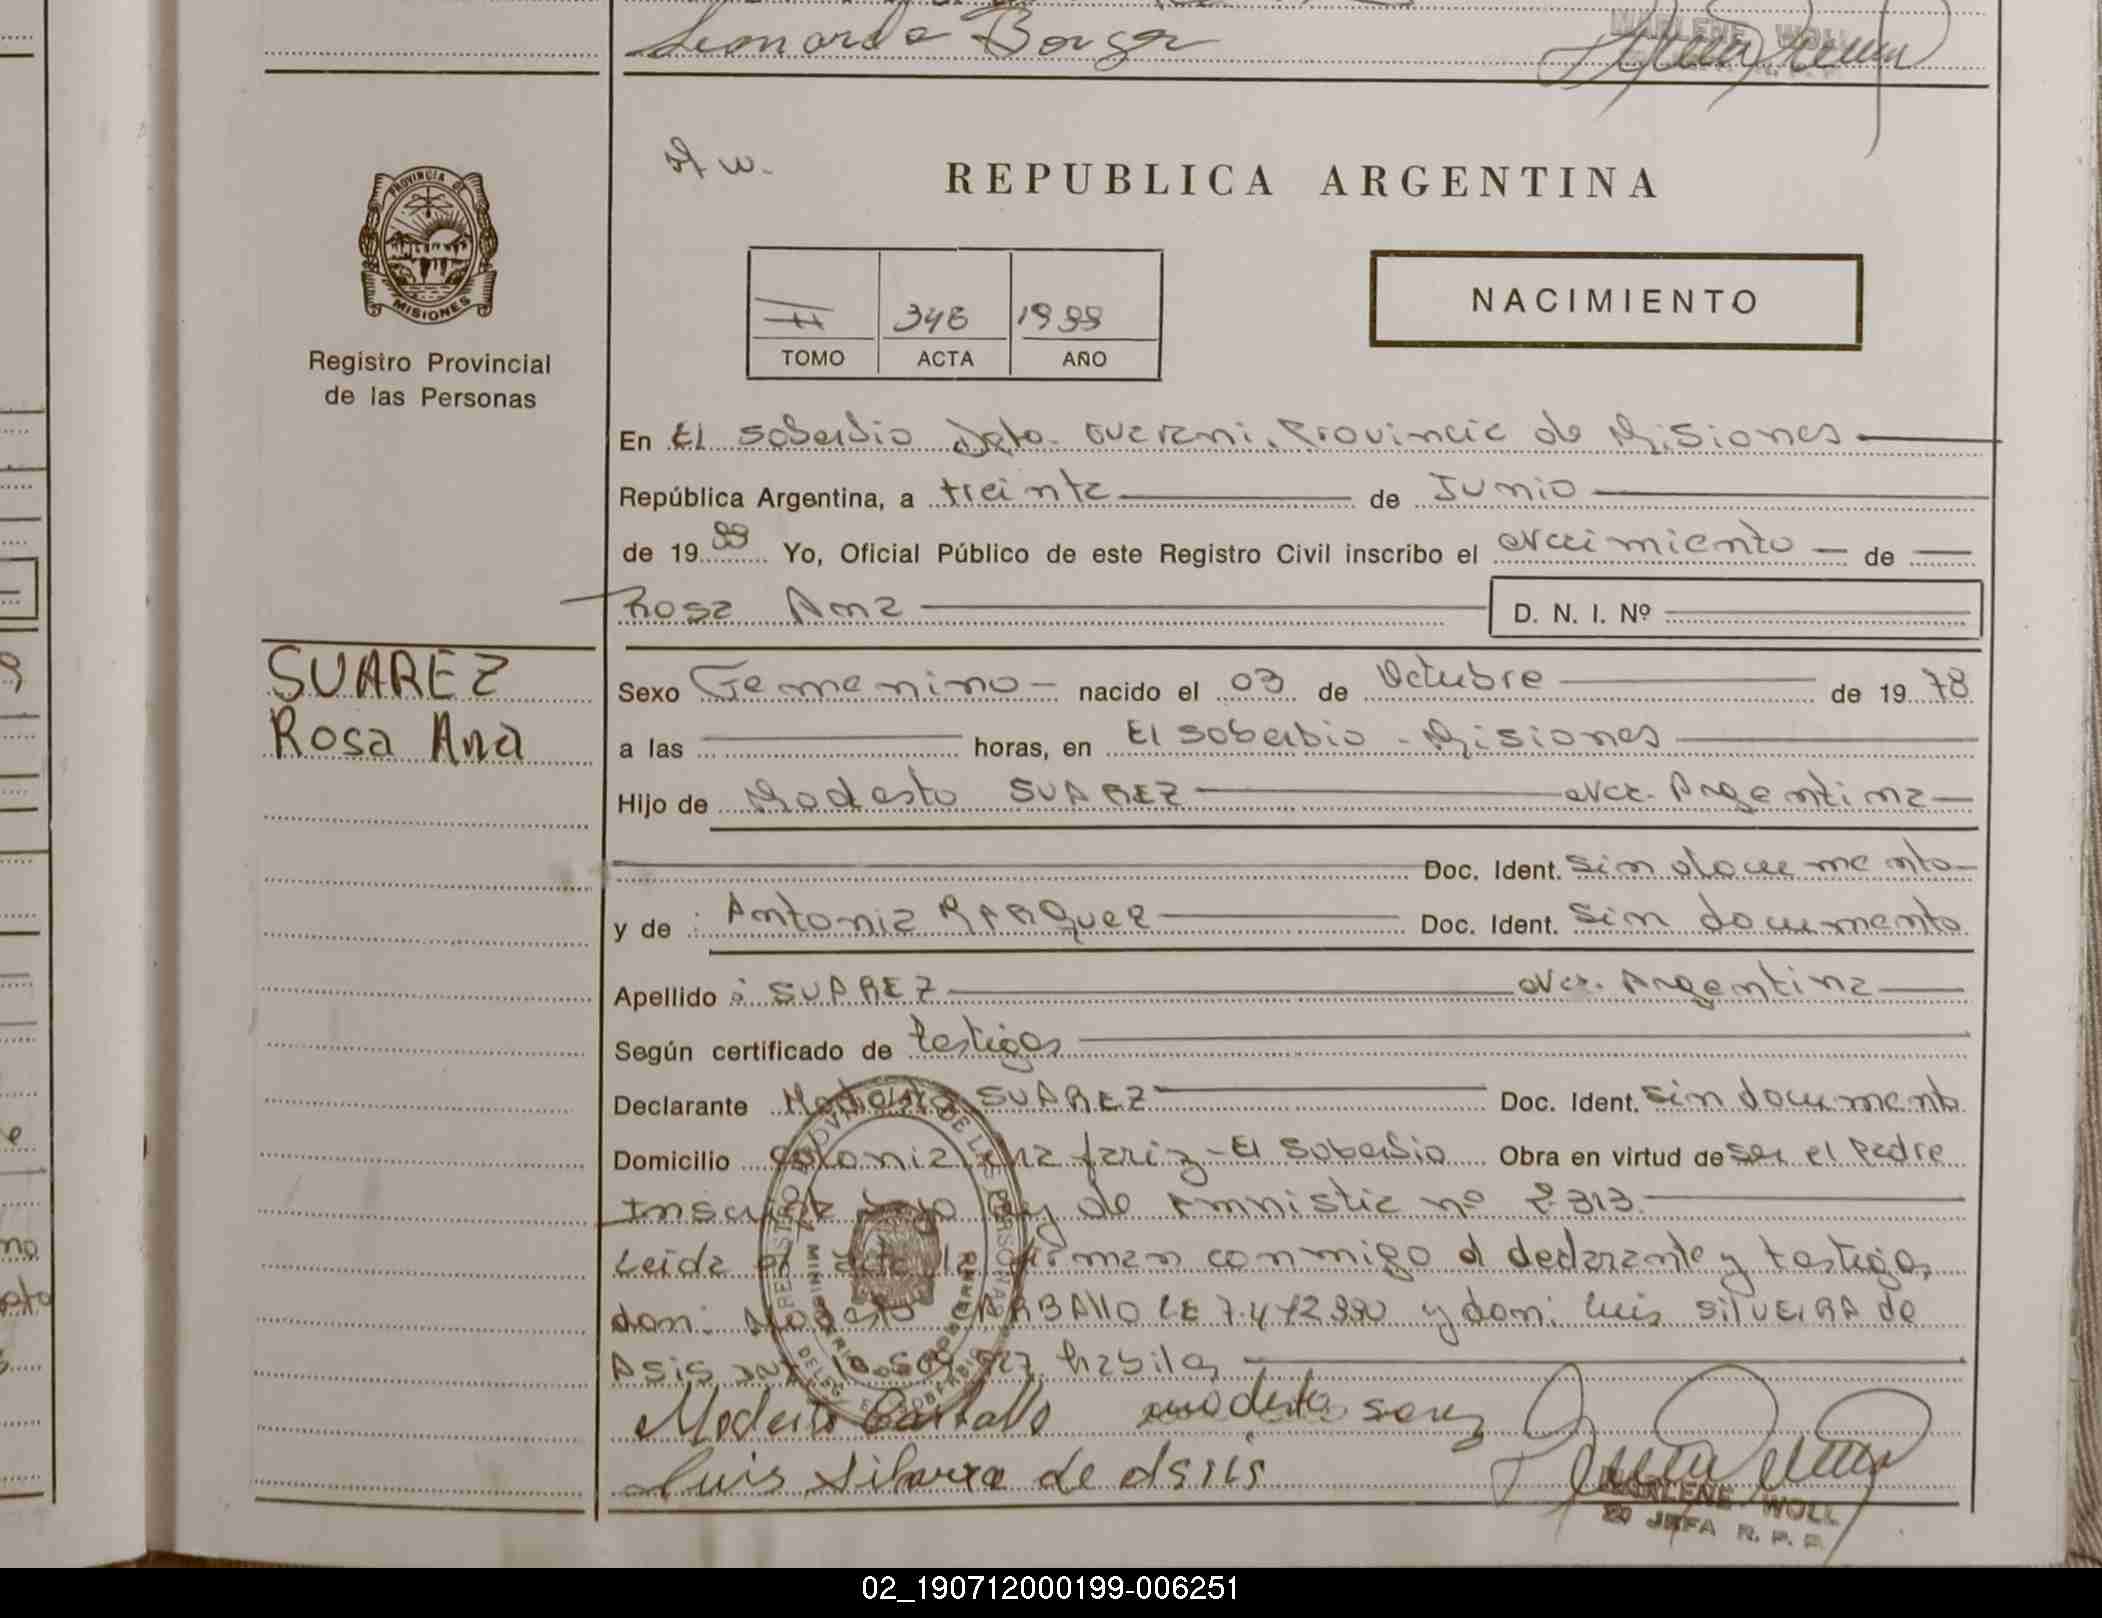 Leonardo Borger
MARLENE WOLL
PROVINCIA DE
MISIONES
Registro Provincial
de las Personas
REPUBLICA ARGENTINA
II 346 1999
TOMO ACTA AÑO
NACIMIENTO
En El Soberbio Dpto. Guarani, Provincia de Misiones
República Argentina, a treinta de Junio
de 1999 Yo, Oficial Público de este Registro Civil inscribo el Nacimiento de
Rosa Ana D. N. I. Nº
SUAREZ
Rosa Ana
Sexo Femenino nacido el 03 de Octubre de 1978
a las horas, en El Soberbio - Misiones
Hijo de Modesto SUAREZ Nac. Argentina
Doc. Ident. Sin documento
y de : Antonia Doc. Ident. Sin documento
Apellido : SUAREZ Nac. Argentina
Según certificado de testigos
Declarante Modesto SUAREZ Doc. Ident. Sin documento
Domicilio Colonia - El Soberbio Obra en virtud de ser el Padre
Inscripta bajo ley de Amnistia nº 2313
Leida el acta la firman conmigo el declarante y testigos
don: Modesto CARBALLO LE 7.472.990 y don: Luis SILVEIRA de
Asis habiles
Modesto Carballo modesto sarez
Luis Silvera de Asiis
MARLENE WOLL
JEFA R. P. P.
02_190712000199-006251